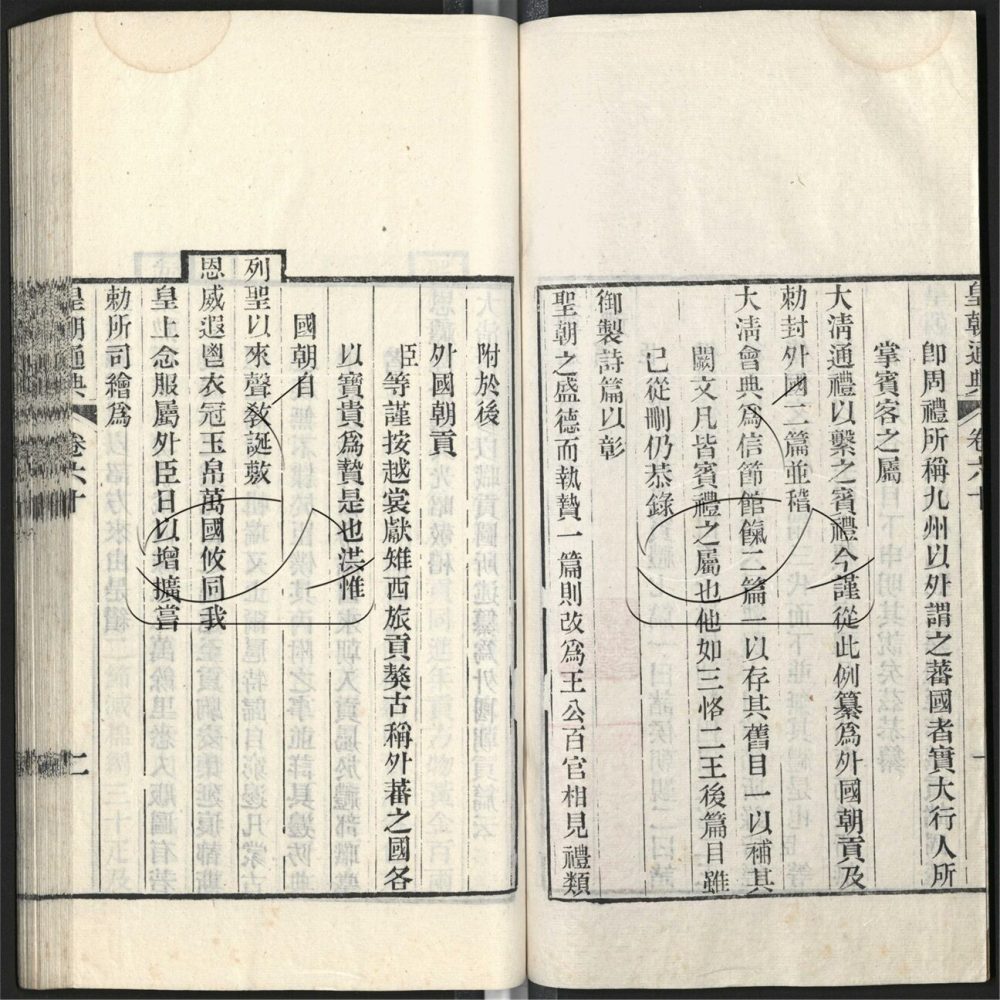 皇朝通典 卷六十 一
卽周禮所稱九州以外謂之蕃國者實大行人所
掌賓客之屬
大淸通禮以繫之賓禮今謹從此例纂爲外國朝貢及
勅封外國二篇並稽
大淸會典爲信節館餼二篇一以存其舊目一以補其
闕文凡皆賓禮之屬也他如三恪二王後篇目雖
已從刪仍恭錄
御製詩篇以彰
聖朝之盛德而執贄一篇則改爲王公百官相見禮類
附於後
外國朝貢
臣等謹按越裳獻雉西旅貢獒古稱外蕃之國各
以寶貴爲贄是也洪惟
國朝自
列聖以來聲敎誕敷
恩威遐鬯衣冠玉帛萬國攸同我
皇上念服屬外臣日以增擴嘗
勅所司繪爲
皇朝通典 卷六十 二